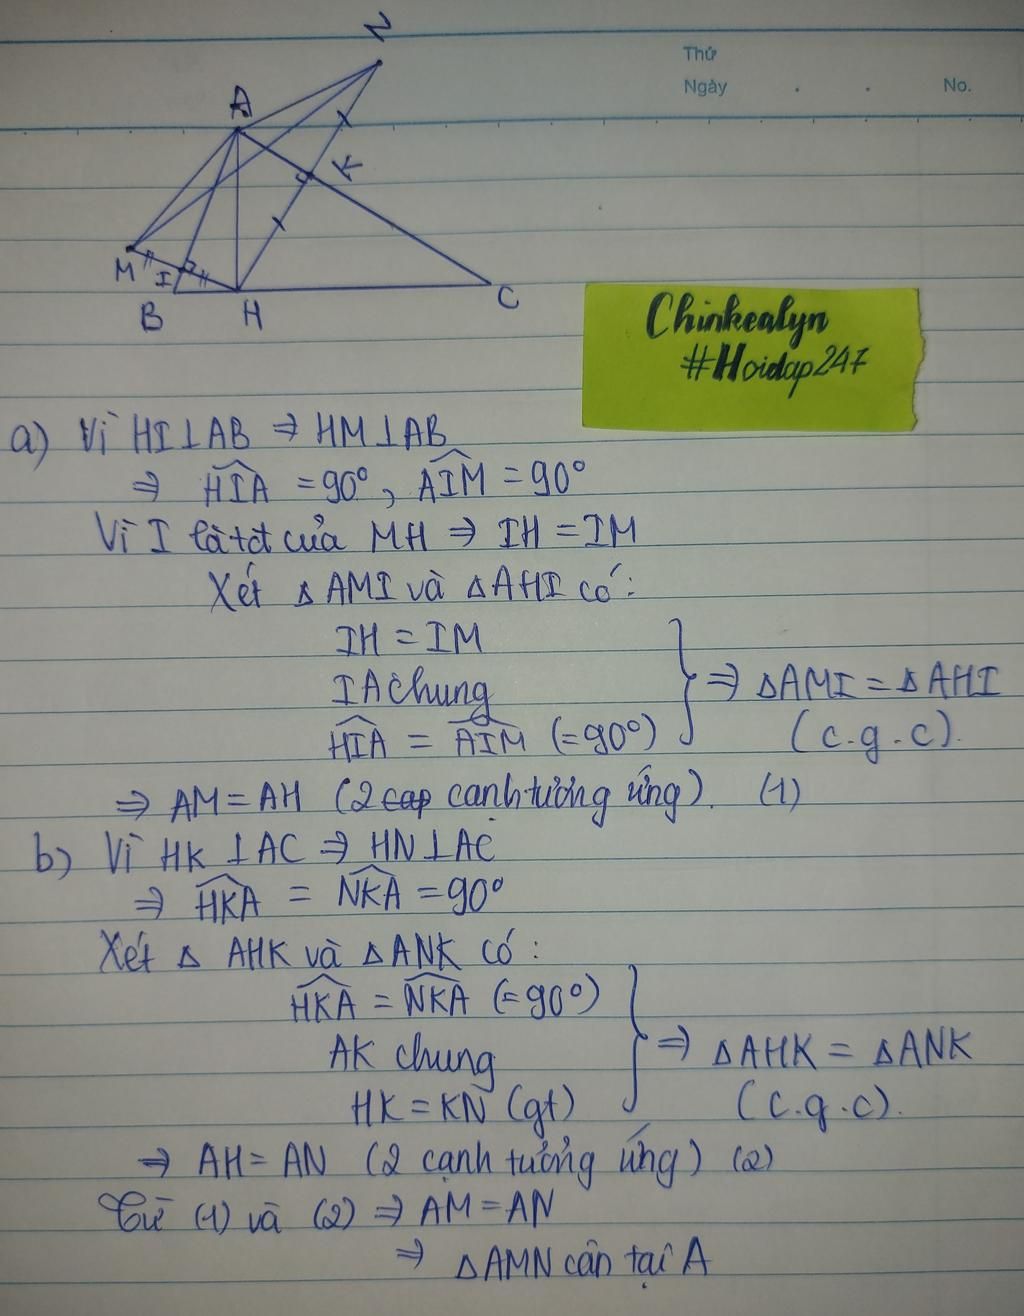 Thứ
Ngày . . No.
N
A
K
M I
B H C
Chinkealyn
#Hoidap247
a) Vì HI⊥AB ⇒ HM⊥AB
⇒ \widehat{HIA} = 90°, \widehat{AIM} = 90°
Vì I là tđ của MH ⇒ IH = IM
Xét △AMI và △AHI có:
IH = IM
IA chung
\widehat{HIA} = \widehat{AIM} (=90°)
⇒ △AMI = △AHI
(c.g.c).
⇒ AM = AH (2 cạnh tương ứng). (1)
b) Vì HK ⊥AC ⇒ HN⊥AC
⇒ \widehat{HKA} = \widehat{NKA} = 90°
Xét △ AHK và △ANK có:
\widehat{HKA} = \widehat{NKA} (=90°)
AK chung
HK = KN (gt)
⇒ △AHK = △ANK
(c.g.c).
⇒ AH = AN (2 cạnh tương ứng) (2)
Từ (1) và (2) ⇒ AM = AN
⇒ △AMN cân tại A